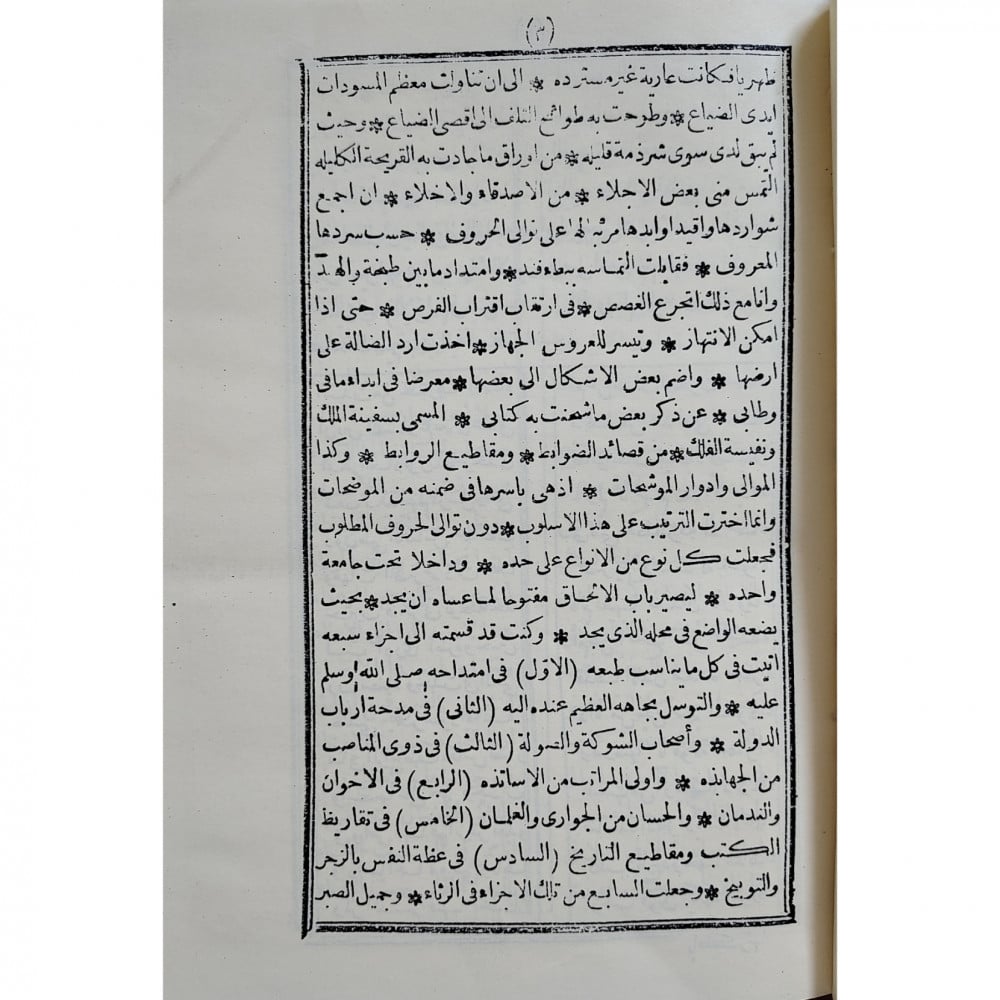 (٣)
ظهريا فكانت عارية غير مسترده * الى ان تناولت معظم المسودات
ايدى الضياع * وطوحت به طوائح التلف الى اقصى الضياع * وحيث
لم يبق لدى سوى شرذمة قليله * من اوراق ما جادت به القريحة الكليله
التمس منى بعض الاجلاء * من الاصدقاء والاخلاء * ان اجمع
شواردها واقيد اوابدها مرتبا لها على توالى الحروف * حسب سردها
المعروف * فقابلت التماسه ببطاء فند * وامتداد مابين طنجة والهند
وانا مع ذلك اتجرع الغصص * فى ارتقاب اقتراب الفرص * حتى اذا
امكن الانتهاز * وتيسر للعروس الجهاز * اخذت ارد الضالة على
ارضها * واضم بعض الاشكال الى بعضها * معرضا فى ابداء مافى
وطابى * عن ذكر بعض ما شحنت به كتابى * المسمى بسفينة الملك
ونفيسة الفلك * من قصائد الضوابط * ومقاطيع الروابط * وكذا
الموالى وادوار الموشحات * اذ هى باسرها فى ضمنه من الموضحات
وانما اخترت الترتيب على هذا الاسلوب * دون توالى الحروف المطلوب
فجعلت كل نوع من الانواع على حده * وداخلا تحت جامعة
واحده * ليصير باب الالحاق مفتوحا لما عساه ان يجد * بحيث
يضعه الواضع فى محله الذى يجد * وكنت قد قسمته الى اجزاء سبعه
اتيت فى كل ما يناسب طبعه (الاول) فى امتداحه صلى الله وسلم
عليه * والتوسل بجاهه العظيم عنده اليه (الثانى) فى مدحة أرباب
الدولة * وأصحاب الشوكة والصولة (الثالث) فى ذوى المناصب
من الجهابذه * واولى المراتب من الاساتذه (الرابع) فى الاخوان
والندمان * والحسان من الجوارى والغلمان (الخامس) فى تقاريظ
الكتب ومقاطيع التاريخ (السادس) فى عظة النفس بالزجر
والتوبيخ * وجعلت السابع من تلك الاجزاء فى الرثاء * وجميل الصبر